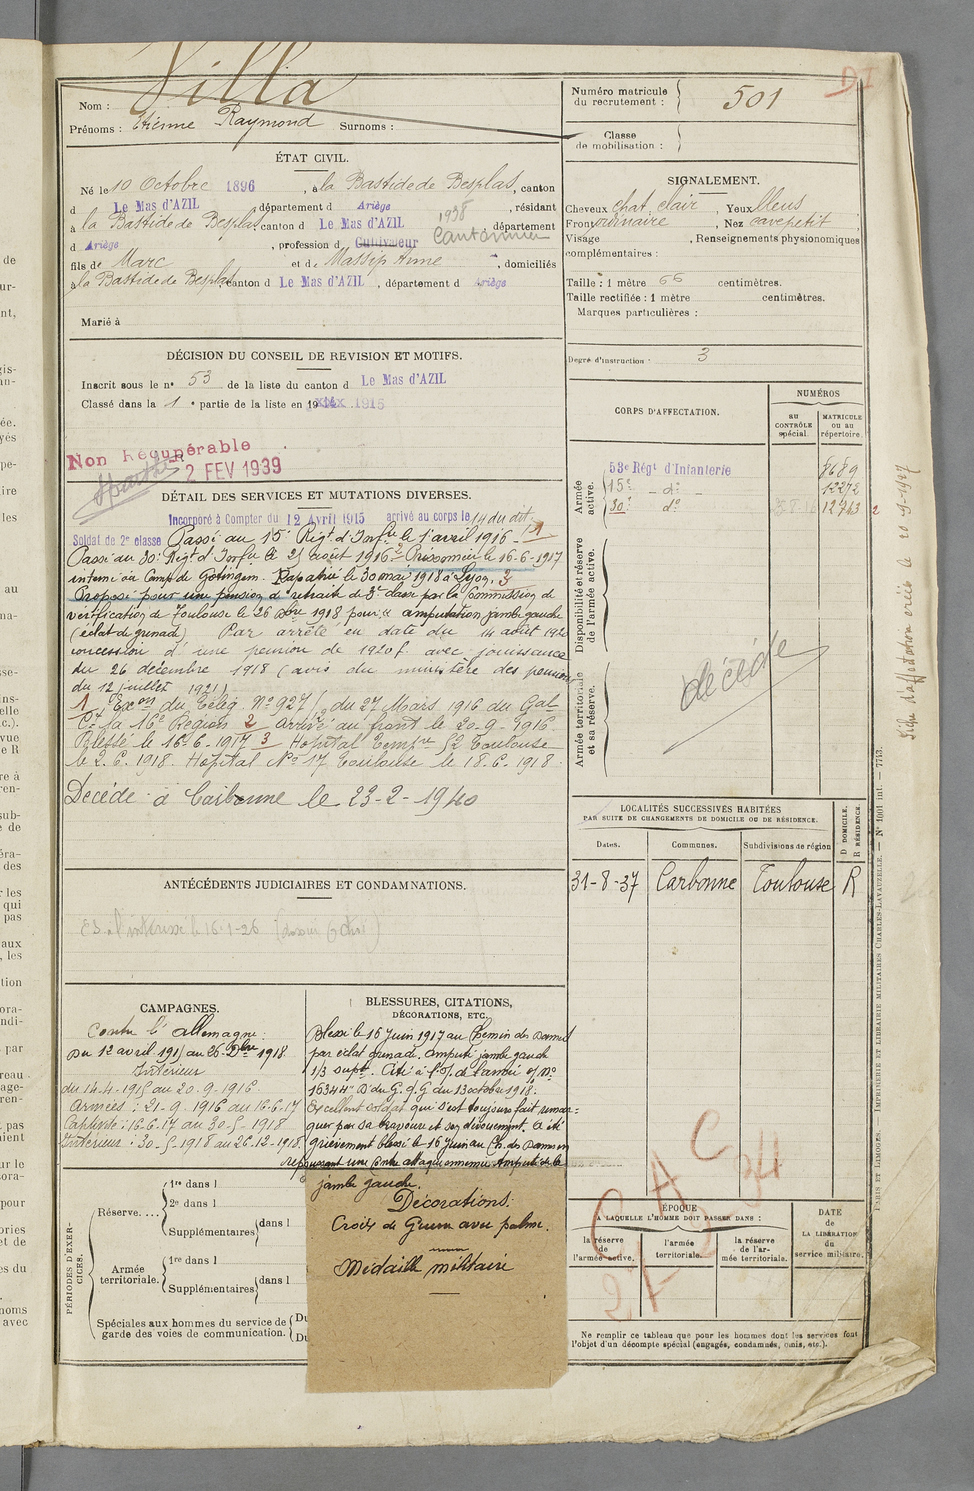 Nom : Villa
Prénoms : Etienne Raymond Surnoms :
ÉTAT CIVIL.
Né le 10 Octobre 1896, à la Bastide de Besplas, canton
d Le Mas d'AZIL, département d Ariège, résidant
à la Bastide de Besplas canton d Le Mas d'AZIL département
1938
d Ariège, profession de Cultivateur Cantonnier
fils de Marc et de Massip Anne, domiciliés
à la Bastide de Besplas canton d Le Mas d'AZIL, département d Ariège
Marié à
DÉCISION DU CONSEIL DE REVISION ET MOTIFS.
Inscrit sous le n° 53 de la liste du canton d Le Mas d'AZIL
Classé dans la 1e partie de la liste en 19 1915
Non Récupérable
2 FEV 1939
DÉTAIL DES SERVICES ET MUTATIONS DIVERSES.
Incorporé à Compter du 12 Avril 1915 arrivé au corps le 14 du dit.
Soldat de 2e classe Passé au 15e Régt d'Infrie le 1er avril 1916 1
Passé au 30e Régt d'Infrie le 25 août 1916 2 Prisonnier le 16-6-1917
interné au Camp de Göttingem. Rapatrié le 30 mai 1918 à Lyon. 3
Proposé pour une pension de retraite de 3e classe par la Commission de
vérification de Toulouse le 26 Xbre 1918 pour « amputation jambe gauche
(éclat de grenade) Par arrêté en date du 14 août 1920
concession d'une pension de 1920f avec jouissance
du 26 décembre 1918 (avis du ministère des pensions
du 12 juillet 1921)
1 Exon du Teleg. N° 927 du 27 Mars 1916 du Gal
Ct la 16e Région 2 Arrivé au front le 20-9-1916
Blessé le 16-6-1917 3 Hopital Tempre 52 Toulouse
le 2.6.1918. Hopital N° 17 Toulouse le 18.6.1918
Décédé à Carbonne le 23-2-1940
ANTÉCÉDENTS JUDICIAIRES ET CONDAMNATIONS.
E.S. à l'intéressé le 16-1-26
CAMPAGNES.
Contre l'Allemagne.
Du 12 avril 1915 au 26 Dbre 1918.
Intérieur
du 14-4-1915 au 20-9-1916.
Armées : 21-9-1916 au 16-6-17
Captivité : 16-6-17 au 30-5-1918
Intérieur : 30-5-1918 au 26-12-1918
BLESSURES, CITATIONS,
DÉCORATIONS, ETC.
Blessé le 16 Juin 1917 au Chemin des Dames
par éclat grenade, amputé jambe gauche
1/3 supr. Cité à l'O. de l'armée
15344 "D" du G.Q.G du 13 octobre 1918.
Excellent soldat qui s'est toujours fait remar-
quer par sa bravoure et son dévouement. A été
grièvement blessé le 16 Juin au Ch. des Dames en
repoussant une contre attaque ennemie. Amputé de la
jambe gauche.
Décorations:
Croix de Guerre avec palme.
Médaille militaire
PÉRIODES D'EXERCICES.
Réserve. . . . 1re dans l
2e dans l
Supplémentaires dans l
Armée territoriale. 1re dans l
Supplémentaires dans l
Spéciales aux hommes du service de garde des voies de communication. Du
Du
Numéro matricule du recrutement : 501
Classe de mobilisation :
SIGNALEMENT.
Cheveux chat. clair, Yeux bleus
Front ordinaire, Nez cave petit,
Visage, Renseignements physionomiques
complémentaires :
Taille : 1 mètre 66 centimètres.
Taille rectifiée : 1 mètre centimètres.
Marques particulières :
Degré d'instruction : 3
CORPS D'AFFECTATION.
NUMÉROS
AU CONTRÔLE spécial.
MATRICULE OU AU répertoire.
Armée active.
53e Régt d'Infanterie 8689
15e _ do _ 12272
30e do 12743 2
Disponibilité et réserve de l'armée active.
Armée territoriale et sa réserve.
décédé
Fiche d'affectation créée le 20-9-1927
LOCALITÉS SUCCESSIVES HABITÉES
PAR SUITE DE CHANGEMENTS DE DOMICILE OU DE RÉSIDENCE.
Dates. Communes. Subdivisions de région
D DOMICILE. R RÉSIDENCE.
31-8-37 Carbonne Toulouse R
ÉPOQUE
A LAQUELLE L'HOMME DOIT PASSER DANS :
la réserve de l'armée active.
l'armée territoriale.
la réserve de l'armée territoriale.
DATE de LA LIBÉRATION du service militaire.
Ne remplir ce tableau que pour les hommes dont les services font
l'objet d'un décompte spécial (engagés, condamnés, omis, etc.).
PARIS ET LIMOGES. — IMPRIMERIE ET LIBRAIRIE MILITAIRES CHARLES-LAVAUZELLE. — N° 1001 int. — 7743.